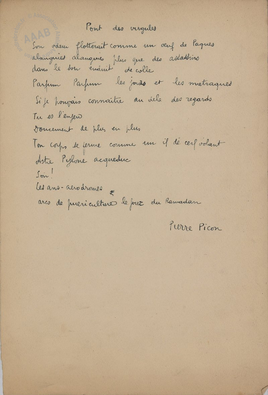 AAAB
Pont des virgules
Son sein flottait comme un œuf de Pâques
alanguies alanguies plus que des assassins
dans le son
Parfum Parfum les joncs et les matraques
Si je pouvais connaître au delà des regards
Tu es l'enjeu
Doucement de plus en plus
Ton corps se ferme comme un if le cerf volant
acqueduc
Son!
Les ans-aérodromes
arcs de puériculture le jour du Ramadan
Pierre Picon